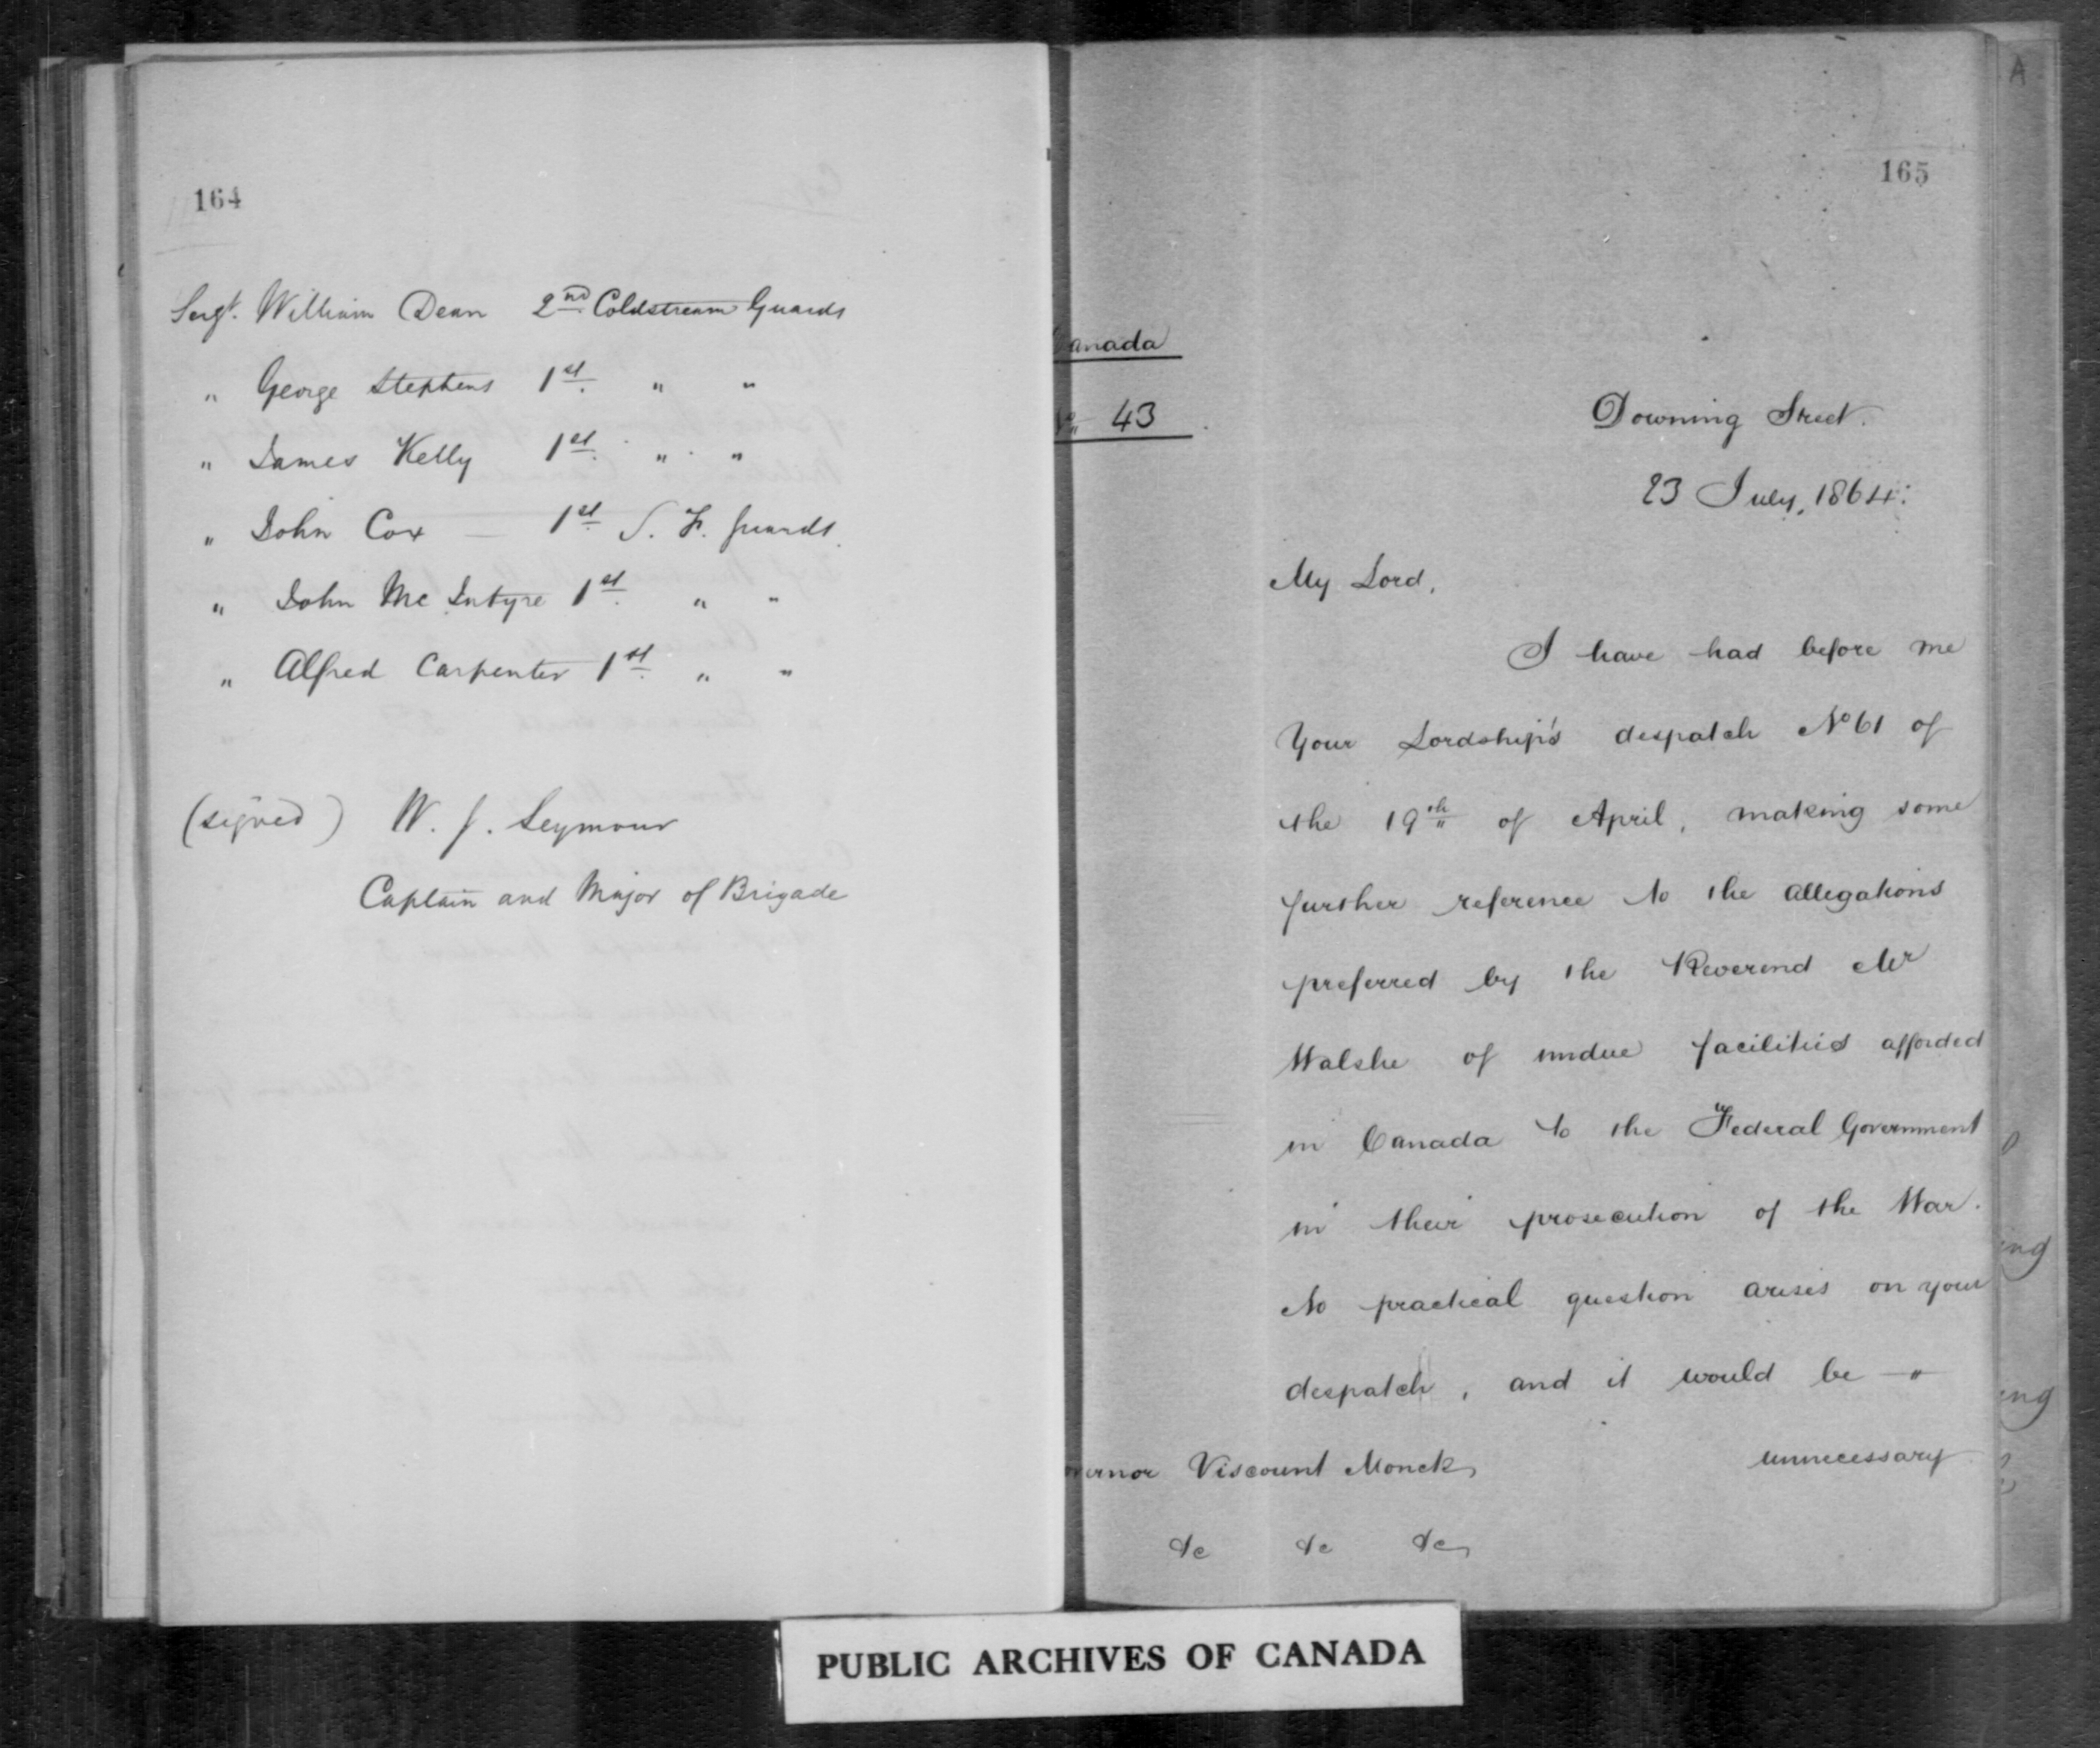 164
Sergt. William Dean 2nd Coldstream Guards
" George Stephens 1st. " "
" James Kelly 1st. " "
" John Cox — 1st S. F. Guards.
" John Mc Intyre 1st. " "
" Alfred Carpenter 1st. " "
(signed) W. J. Seymour
Captain and Major of Brigade
165
Canada
No 43
Downing Street.
23 July, 1864.
My Lord,
I have had before me
Your Lordship's despatch No 61 of
the 19th of April, making some
further reference to the allegations
preferred by the Reverend Mr
Walshe of undue facilities afforded
in Canada to the Federal Government
in their prosecution of the War.
No practical question arises on your
despatch, and it would be —"
unnecessary
Governor Viscount Monck
&c &c &c
PUBLIC ARCHIVES OF CANADA